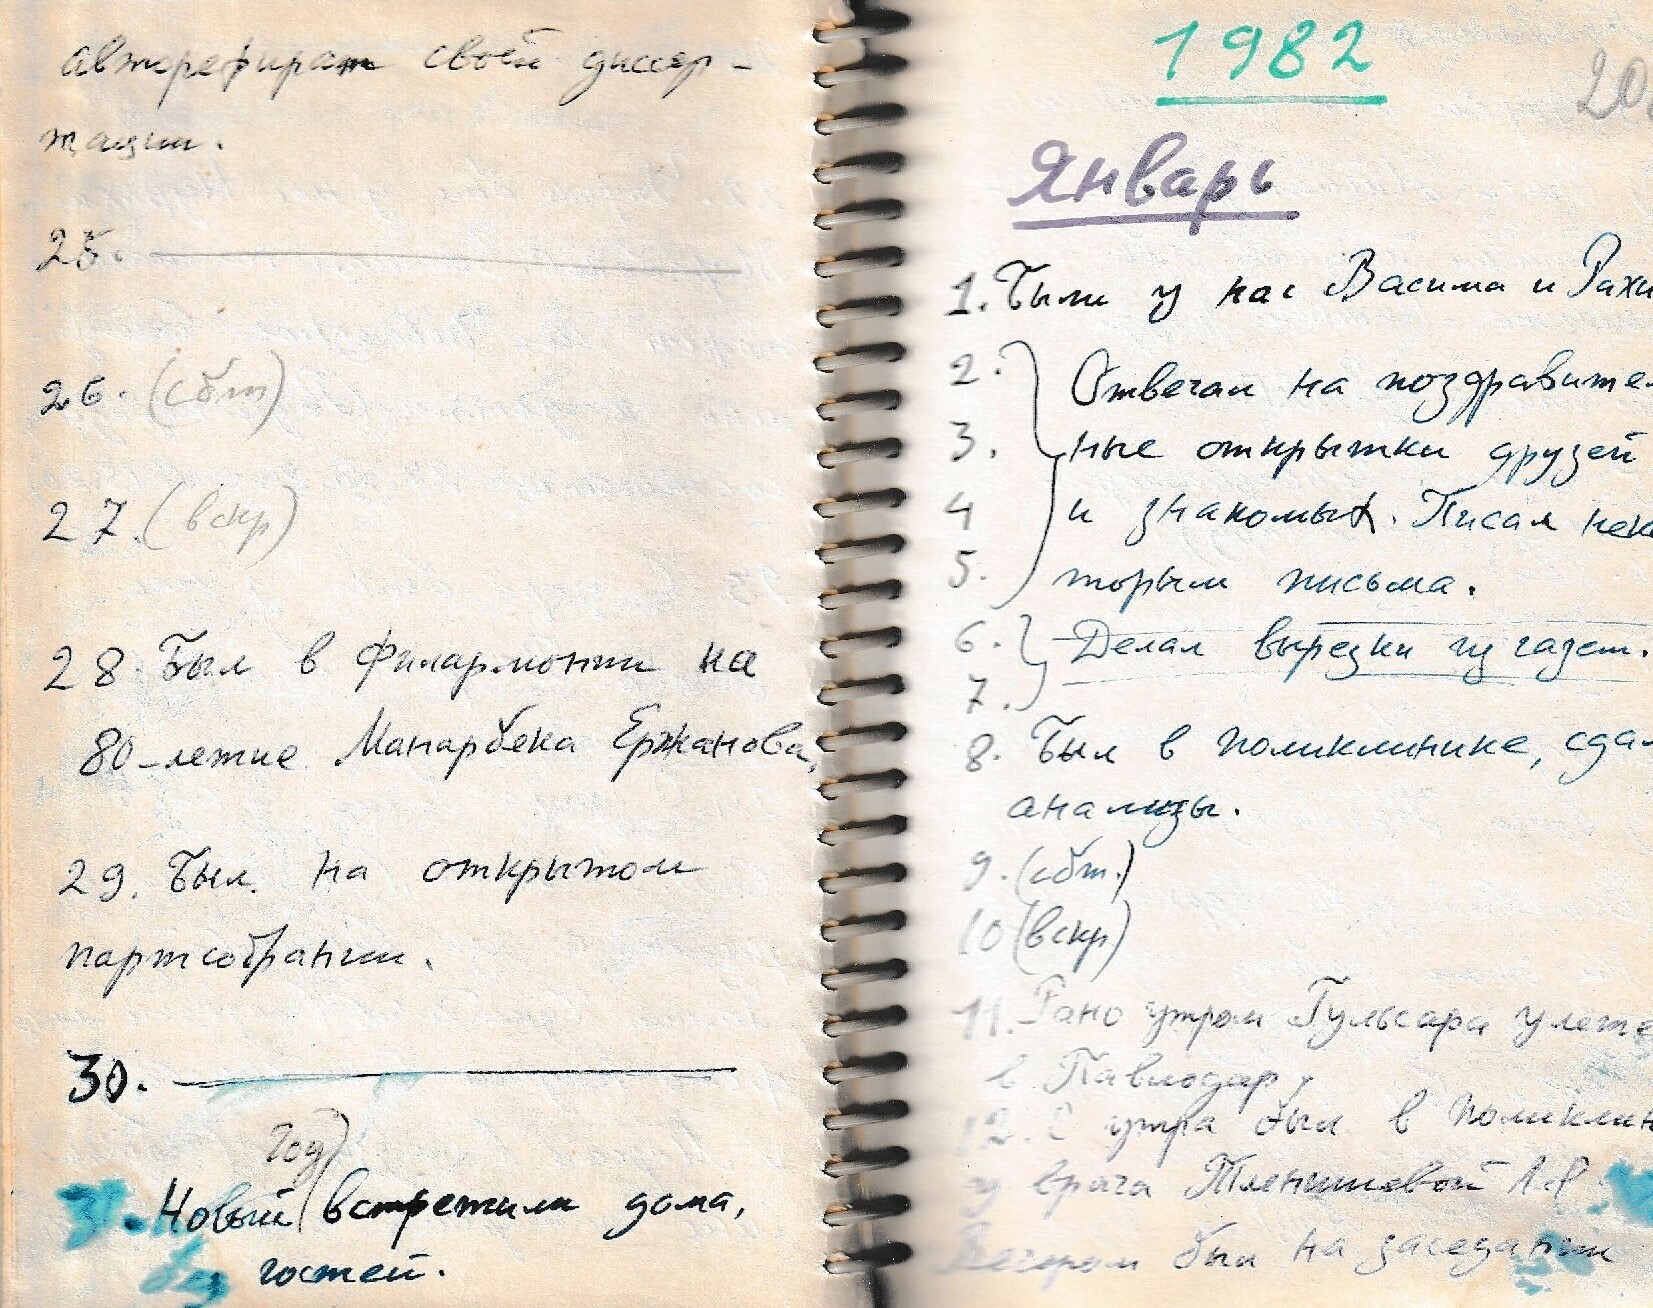 автореферат своей диссер-
тации.
25.
26. (сбт)
27. (вскр)
28 Был в филармонии на
80-летие Манарбека Ержанова,
29. Был на открытом
партсобрании.
30.
год
31. Новый встретили дома,
без гостей.
1982
20.
Январь
1. Были у нас Васима и Рахи
2. Отвечал на поздравител
3. ные открытки друзей
4 и знакомых. Писал неко
5. торым письма.
6. Делал вырезки из газет.
7.
8. Был в поликлинике, сдал
анализы.
9. (сбт.)
10 (вскр)
11. Рано утром Гульсара улете
в Павлодар
12. С утра был в поликлин
у врача Тленшиевой
Вечером был на заседании